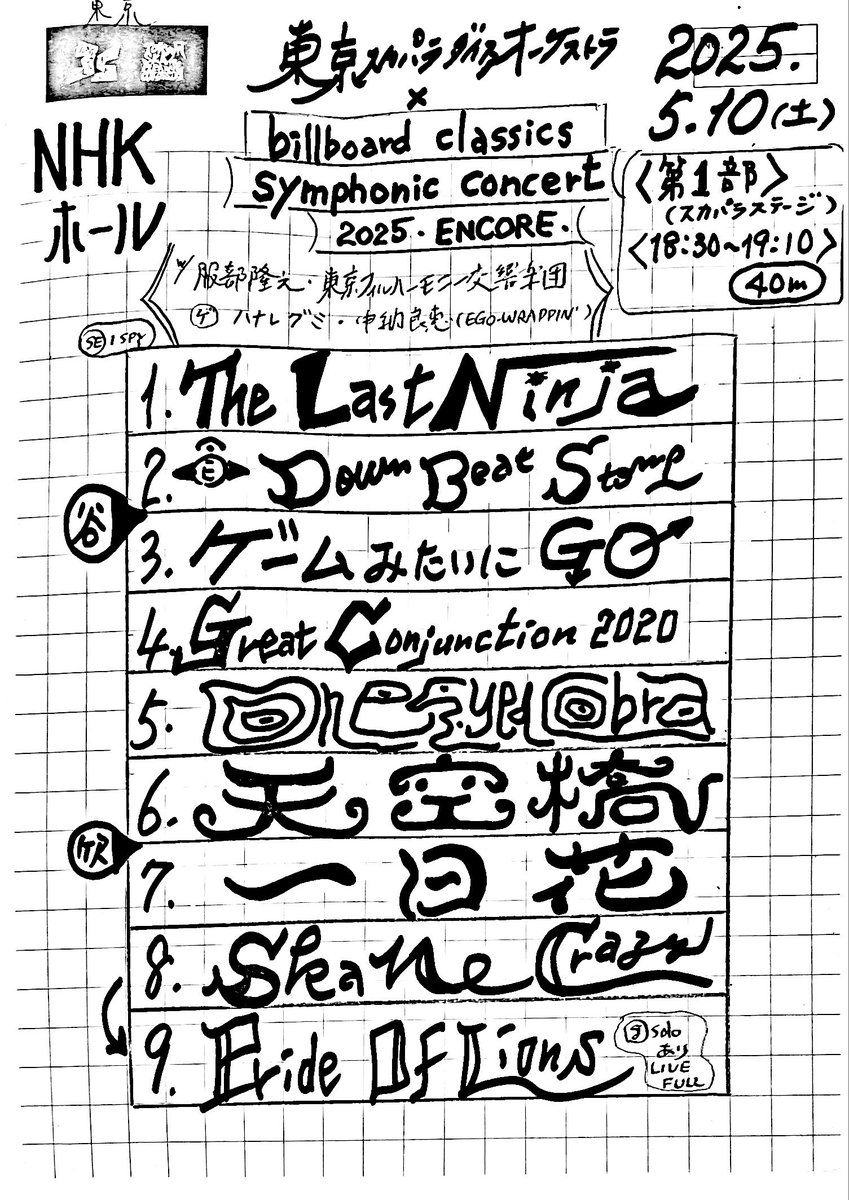 東京
東京スカパラダイスオーケストラ
×
billboard classics
symphonic concert
2025・ENCORE・
2025.
5.10(土)
NHK
ホール
〈第1部〉
(スカパラステージ)
〈18:30~19:10〉
40m
w/ 服部隆之・東京フィルハーモニー交響楽団
ゲ ハナレグミ・中納良恵(EGO-WRAPPIN')
SE I SPY
1. The Last Ninja
2. Down Beat Stomp
谷
3. ゲームみたいに GO
4. Great Conjunction 2020
5. One Eyed Cobra
6. 天空橋
7. 一日花
8. Ska Me Crazy
9. Pride Of Lions
solo
あり
LIVE
FULL